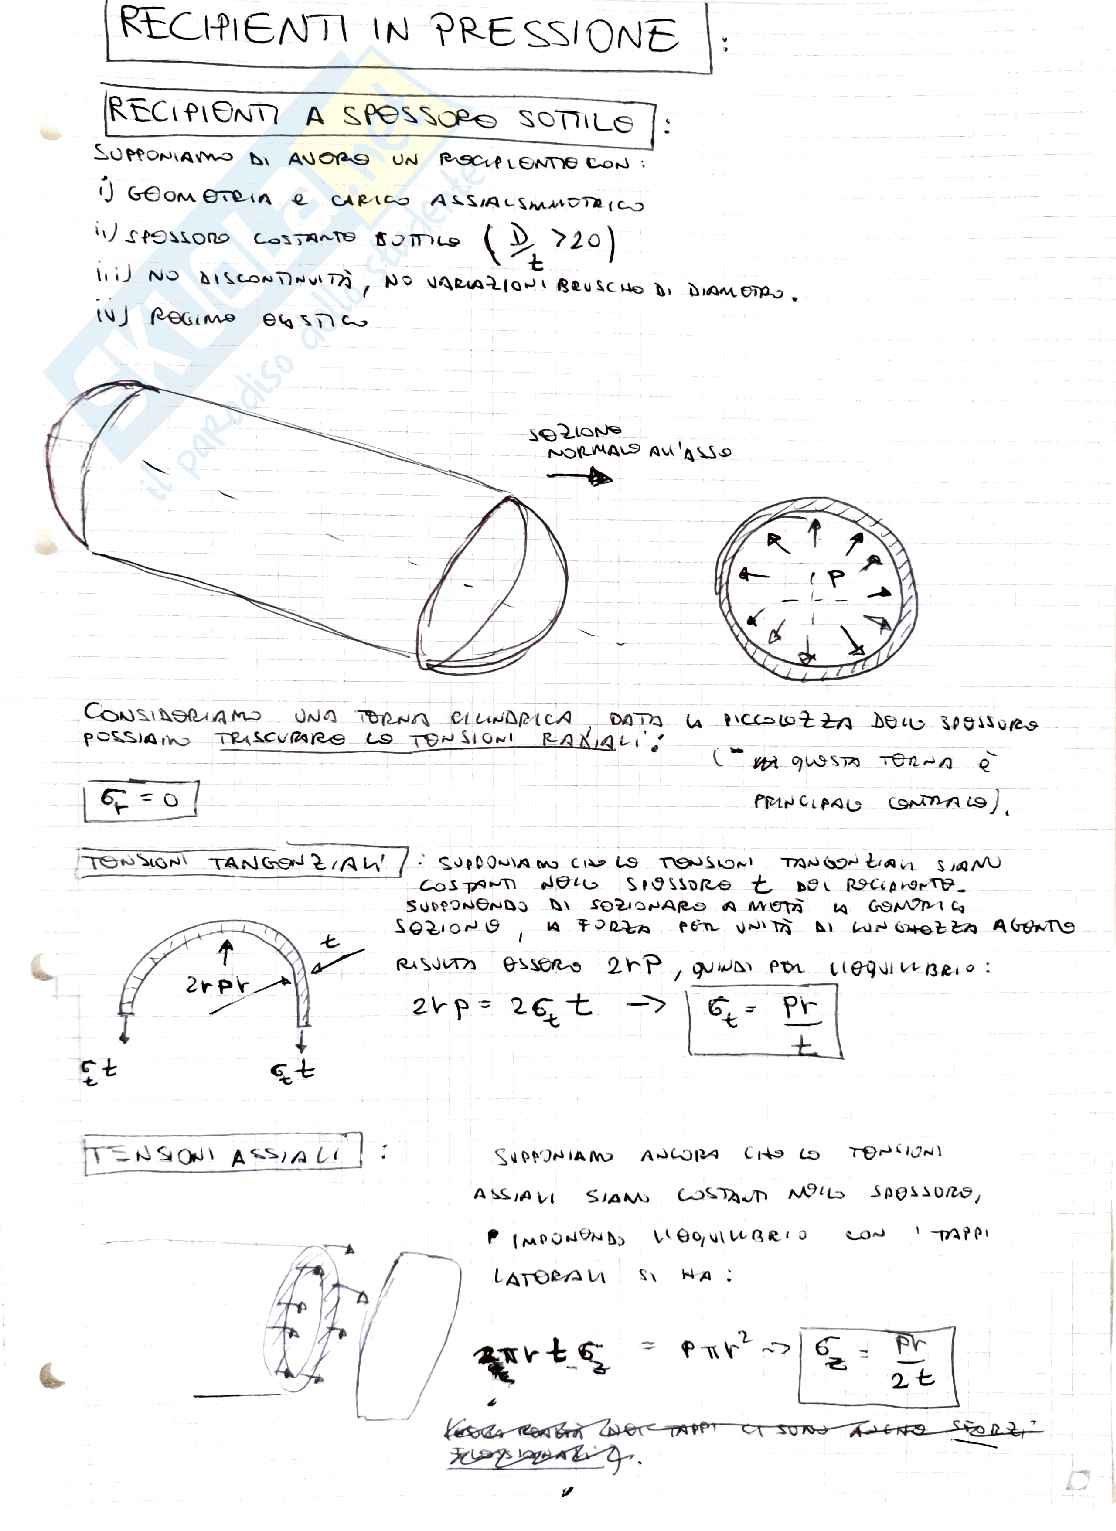 RECIPIENTI IN PRESSIONE :
RECIPIENTI A SPESSORE SOTTILE :
SUPPONIAMO DI AVERE UN RECIPIENTE CON :
i) GEOMETRIA E CARICO ASSIALSIMMETRICO
ii) SPESSORE COSTANTE SOTTILE ( D/t >20)
iii) NO DISCONTINUITÀ, NO VARIAZIONI BRUSCHE DI DIAMETRO.
iv) REGIME ELASTICO
SKUOLA.net
il paradiso dello studente
SEZIONE
NORMALE ALL'ASSE
P
CONSIDERIAMO UNA TERNA CILINDRICA, DATA LA PICCOLEZZA DELLO SPESSORE
POSSIAMO TRASCURARE LE TENSIONI RADIALI :
( QUESTA TERNA È
PRINCIPALE CENTRALE).
σr = 0
TENSIONI TANGENZIALI : SUPPONIAMO CHE LE TENSIONI TANGENZIALI SIANO
COSTANTI NELLO SPESSORE t DEL RECIPIENTE.
SUPPONENDO DI SEZIONARE A METÀ LA GENERICA
SEZIONE, LA FORZA PER UNITÀ DI LUNGHEZZA AGENTE
RISULTA ESSERE 2rP, QUINDI PER L'EQUILIBRIO :
t
2rp r
2rp = 2σt t → σt = pr/t
σt t σt t
TENSIONI ASSIALI :
SUPPONIAMO ANCORA CHE LE TENSIONI
ASSIALI SIANO COSTANTI NELLO SPESSORE,
IMPONENDO L'EQUILIBRIO CON I TAPPI
LATERALI SI HA :
2πr t σz = P πr² → σz = pr/2t
NEI TAPPI CI SONO ANCHE SFORZI